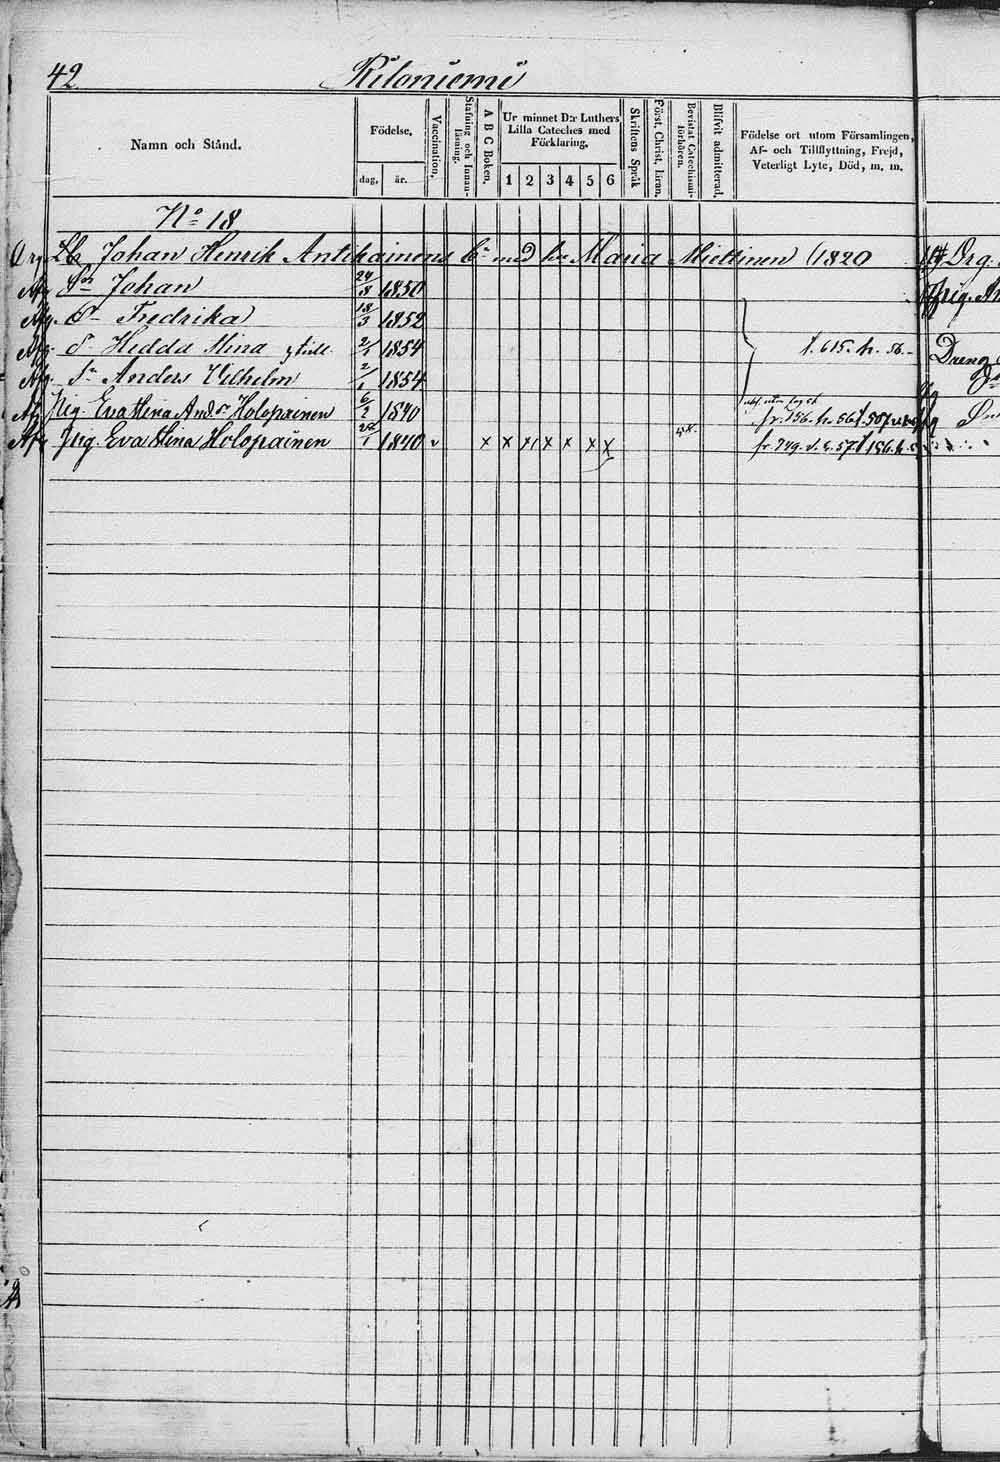 42 Riloniemi
Namn och Stånd.
Födelse.
dag. år.
Vaccination.
Stafning och Innan-
läsning.
A B C Boken.
Ur minnet D:r Luthers
Lilla Cateches med
Förklaring.
1 2 3 4 5 6
Skriftens Språk
Först. Christ. läran.
Bevistat Catechismi-
förhören.
Blifvit admitterad.
Födelse ort utom Församlingen,
Af- och Tillflyttning, Frejd,
Veterligt Lyte, Död, m. m.
No 18
Johan Henrik Antikainens med Maria Miettinen (1820
Sn Johan 24/8 1850
Dr Fredrika 18/3 1852
Dr Hedda Stina 2/1 1854 t. 615. h. 56.
Sn Anders Vilhelm 2/1 1854
Pig. Eva Stina And. dr Holopainen 6/2 1840 fr. 156. h. 56
Pig Eva Stina Holopainen 1840 v x x x x x x x fr. 749. 57. t 156. h.
Drg.
Pig.
Dreng